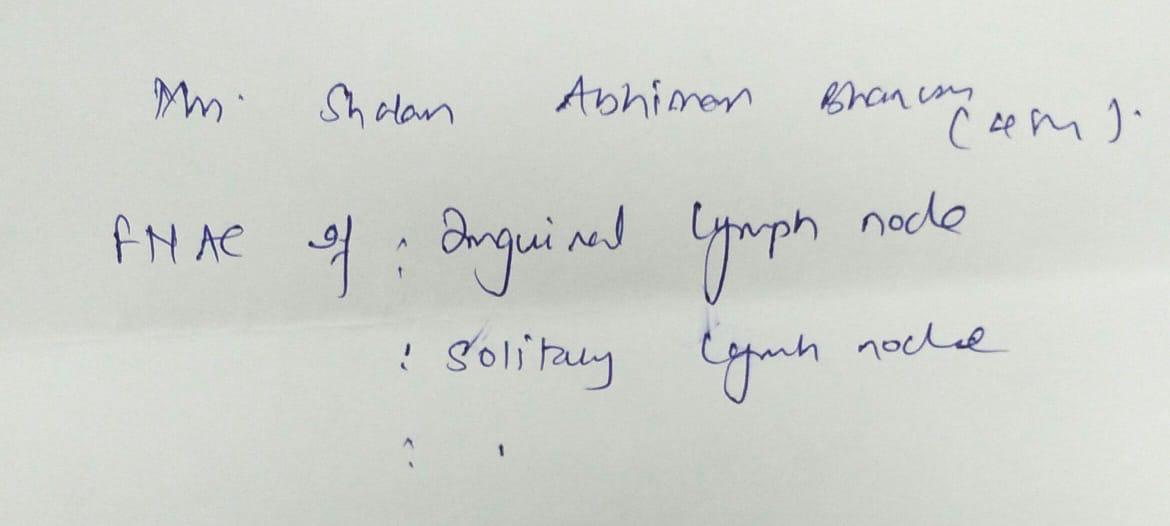 Mr. Shalan Abhiman
FNAC of : Inguinal lymph node
: Solitary lymh node
: